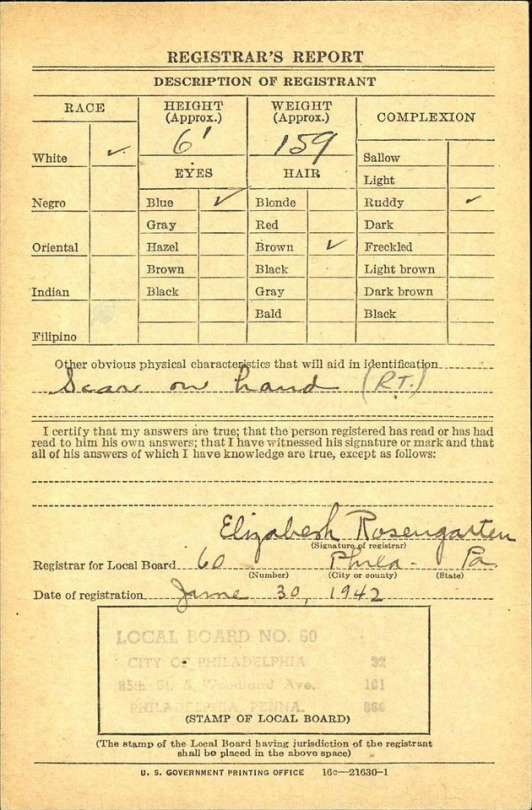 REGISTRAR'S REPORT
DESCRIPTION OF REGISTRANT
RACE
HEIGHT (Approx.)
WEIGHT (Approx.)
COMPLEXION
6' 159
White ✓
Sallow
EYES HAIR
Light
Negro Blue ✓ Blonde Ruddy ✓
Gray Red Dark
Oriental Hazel Brown ✓ Freckled
Brown Black Light brown
Indian Black Gray Dark brown
Bald Black
Filipino
Other obvious physical characteristics that will aid in identification
Scar on hand (RT.)
I certify that my answers are true; that the person registered has read or has had
read to him his own answers; that I have witnessed his signature or mark and that
all of his answers of which I have knowledge are true, except as follows:
Elizabeth Rosengarten
(Signature of registrar)
Registrar for Local Board 60 Phila. Pa.
(Number) (City or county) (State)
Date of registration June 30, 1942
LOCAL BOARD NO. 60
CITY OF PHILADELPHIA 32
35th St. & Woodland Ave. 101
PHILADELPHIA, PENNA.
(STAMP OF LOCAL BOARD)
(The stamp of the Local Board having jurisdiction of the registrant
shall be placed in the above space)
U. S. GOVERNMENT PRINTING OFFICE 16c—21630-1